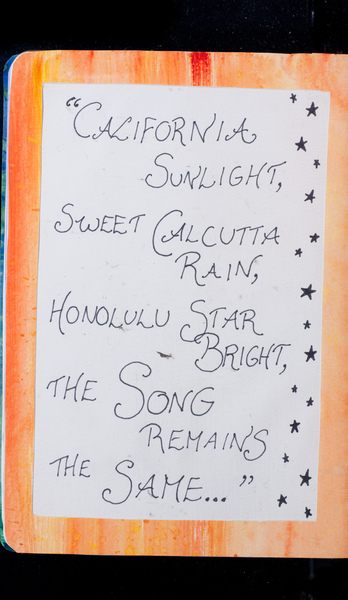 "CALIFORNIA
SUNLIGHT,
SWEET CALCUTTA
RAIN,
HONOLULU STAR
BRIGHT,
THE SONG
REMAINS
THE SAME..."